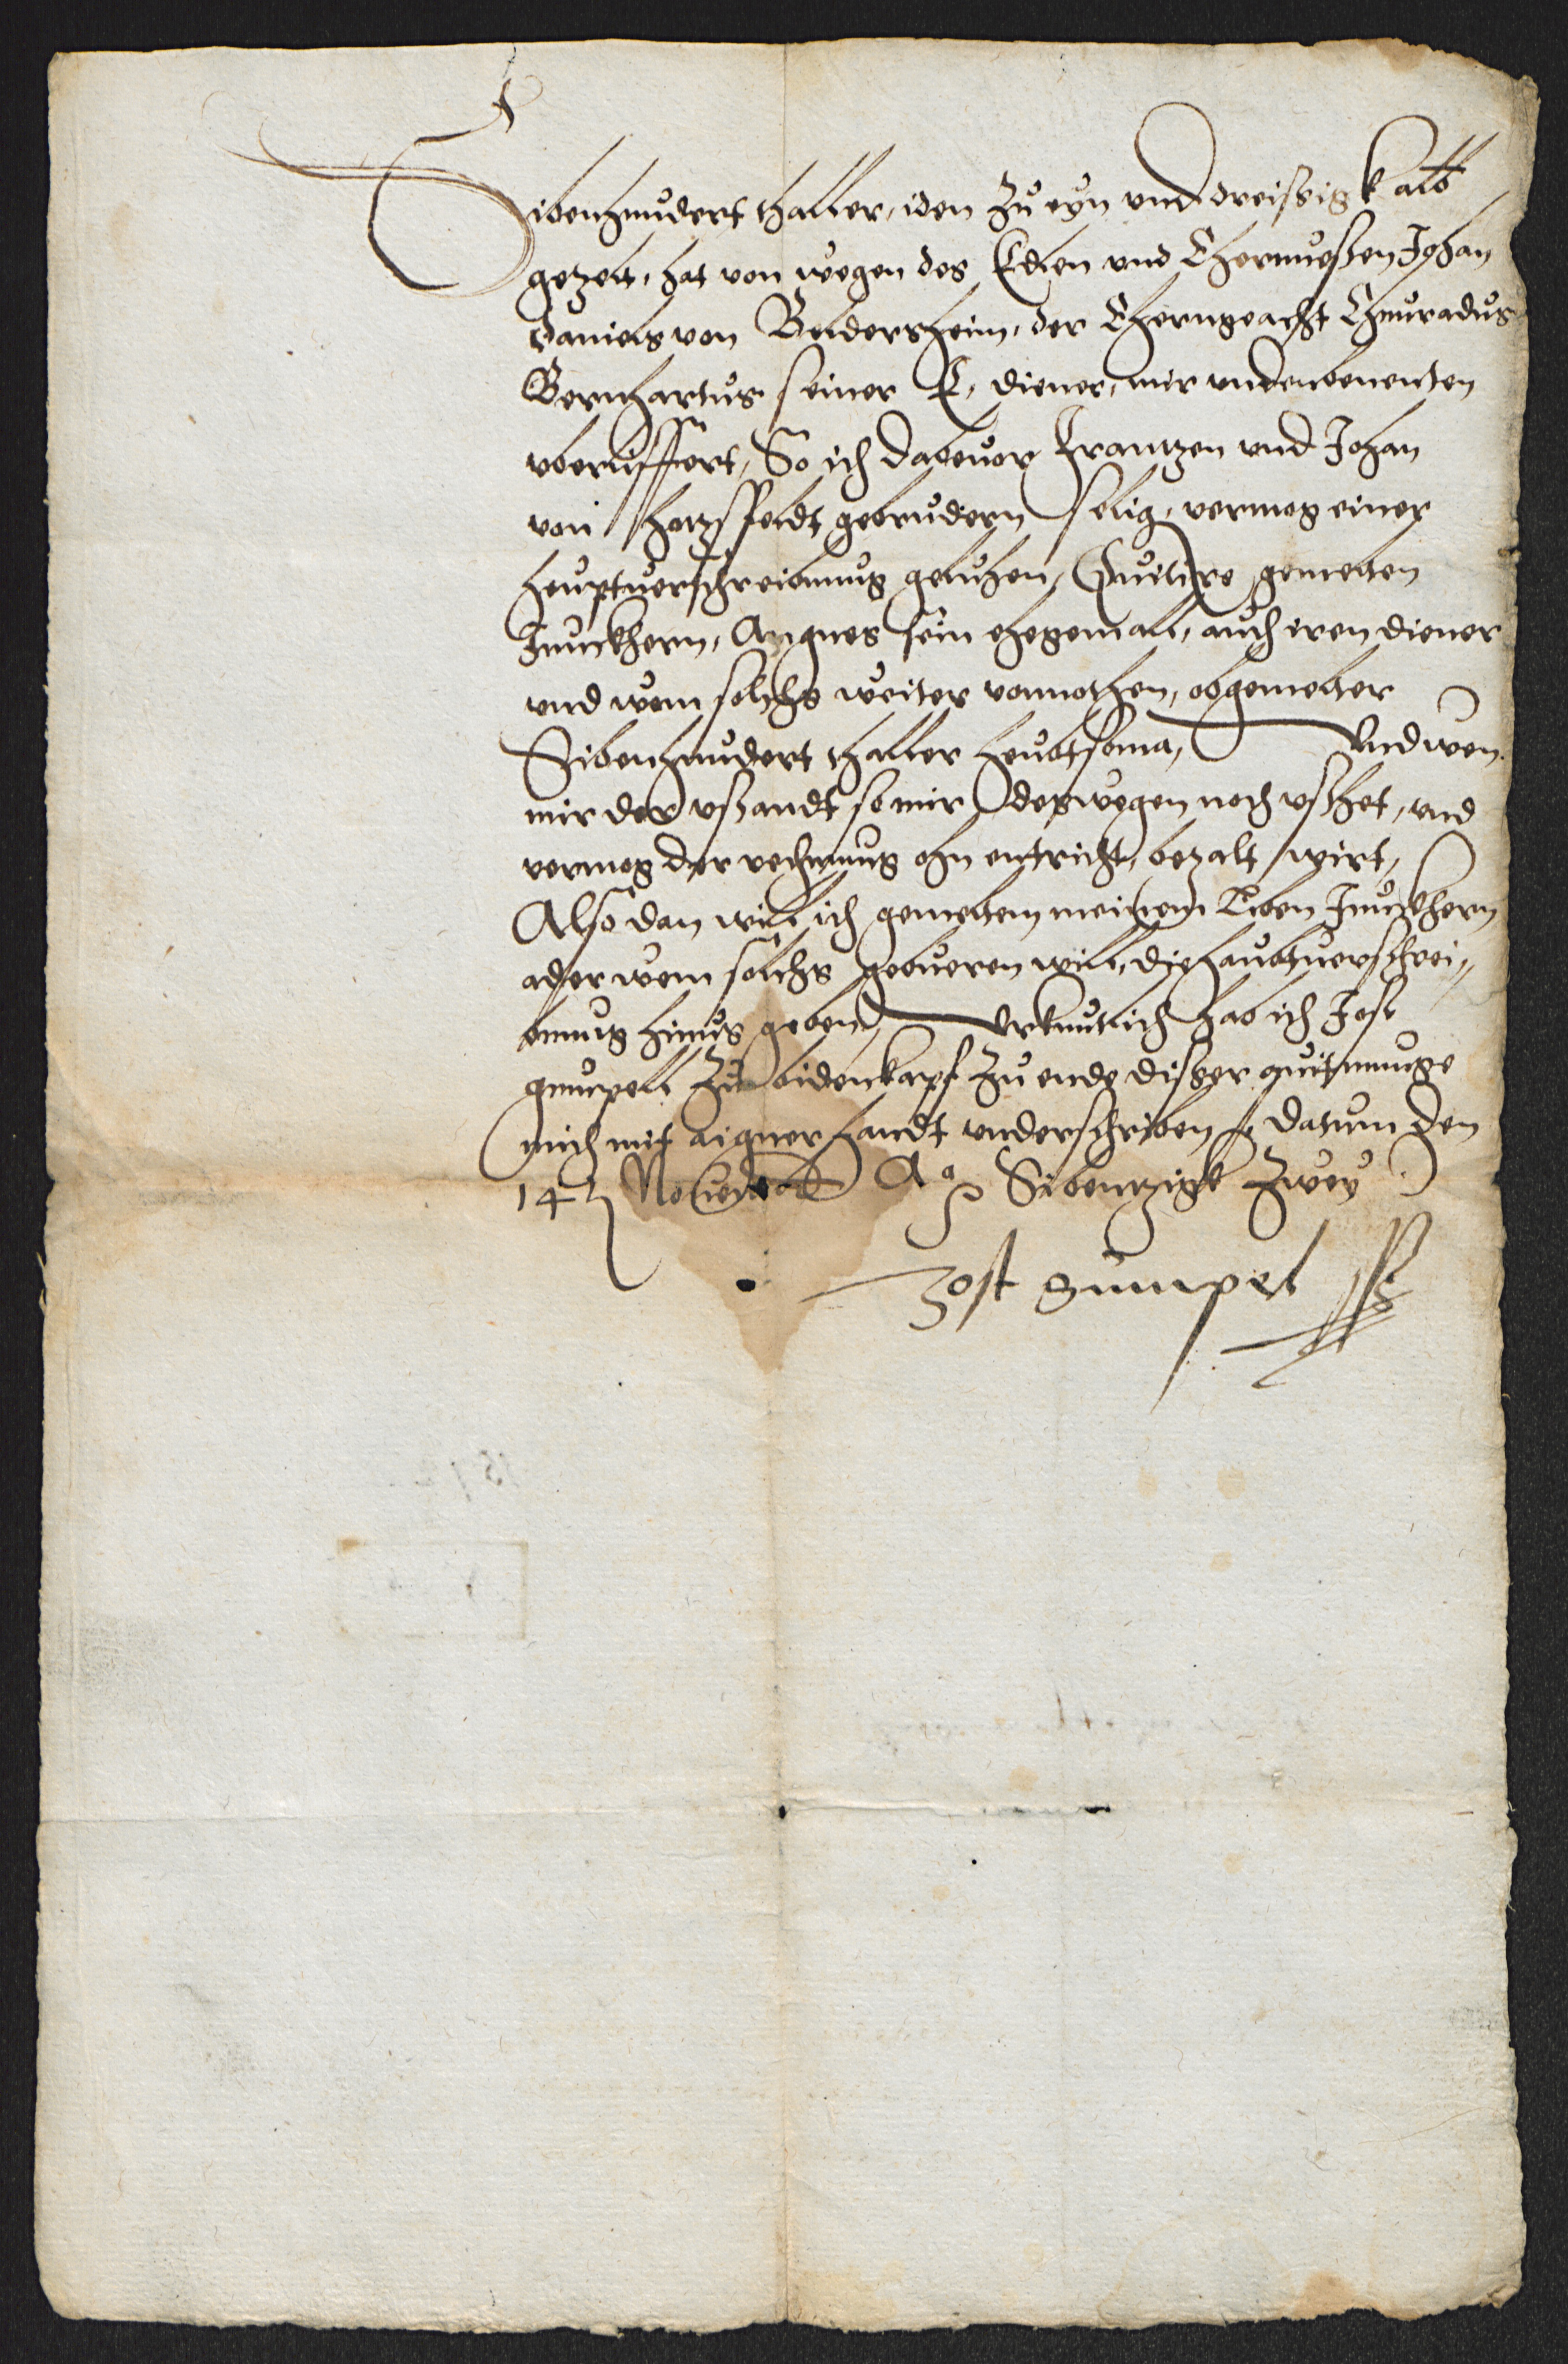 Sibenhundert thaller, iden zu eyn und dreissig k alb
gezelt, hat von wegen des Edlen und Ehernuessen Johan
Daniels von Buldersheim, der Eherngeacht Chunradus
Bernhartus seiner E. diener, mir undenbenenten
uberlieffert, So ich dabeuor Frantzen und Johan
von Hatzffeldt gebrudern selig, vermog einer
heuptverschreibunng geluhen, Quitire gemelten
Junckhern, Angnes sein ehegemall, auch iren diener
und wem solchs weiter vonnothen, obgemelter
Sibenhundert thaller heubtsoma, Und wen
mir der ußstandt so mir deßwegen noch ußstet, und
vermog der rechnung ohn entricht, bezalt wirt,
Also dan will ich gemeltem meinem Lieben Junckhern
ader wem solchs gebueren will, die haubtverschrei,,
bunng hinus geben, Urkuntlich hab ich Jost
gumpell zu bidenkapf zu ende disser quitunnge
mich mit aigner handt underschriben, Datum den
14 Novembris Ao Sibentzigk zwey
Jost gumpel